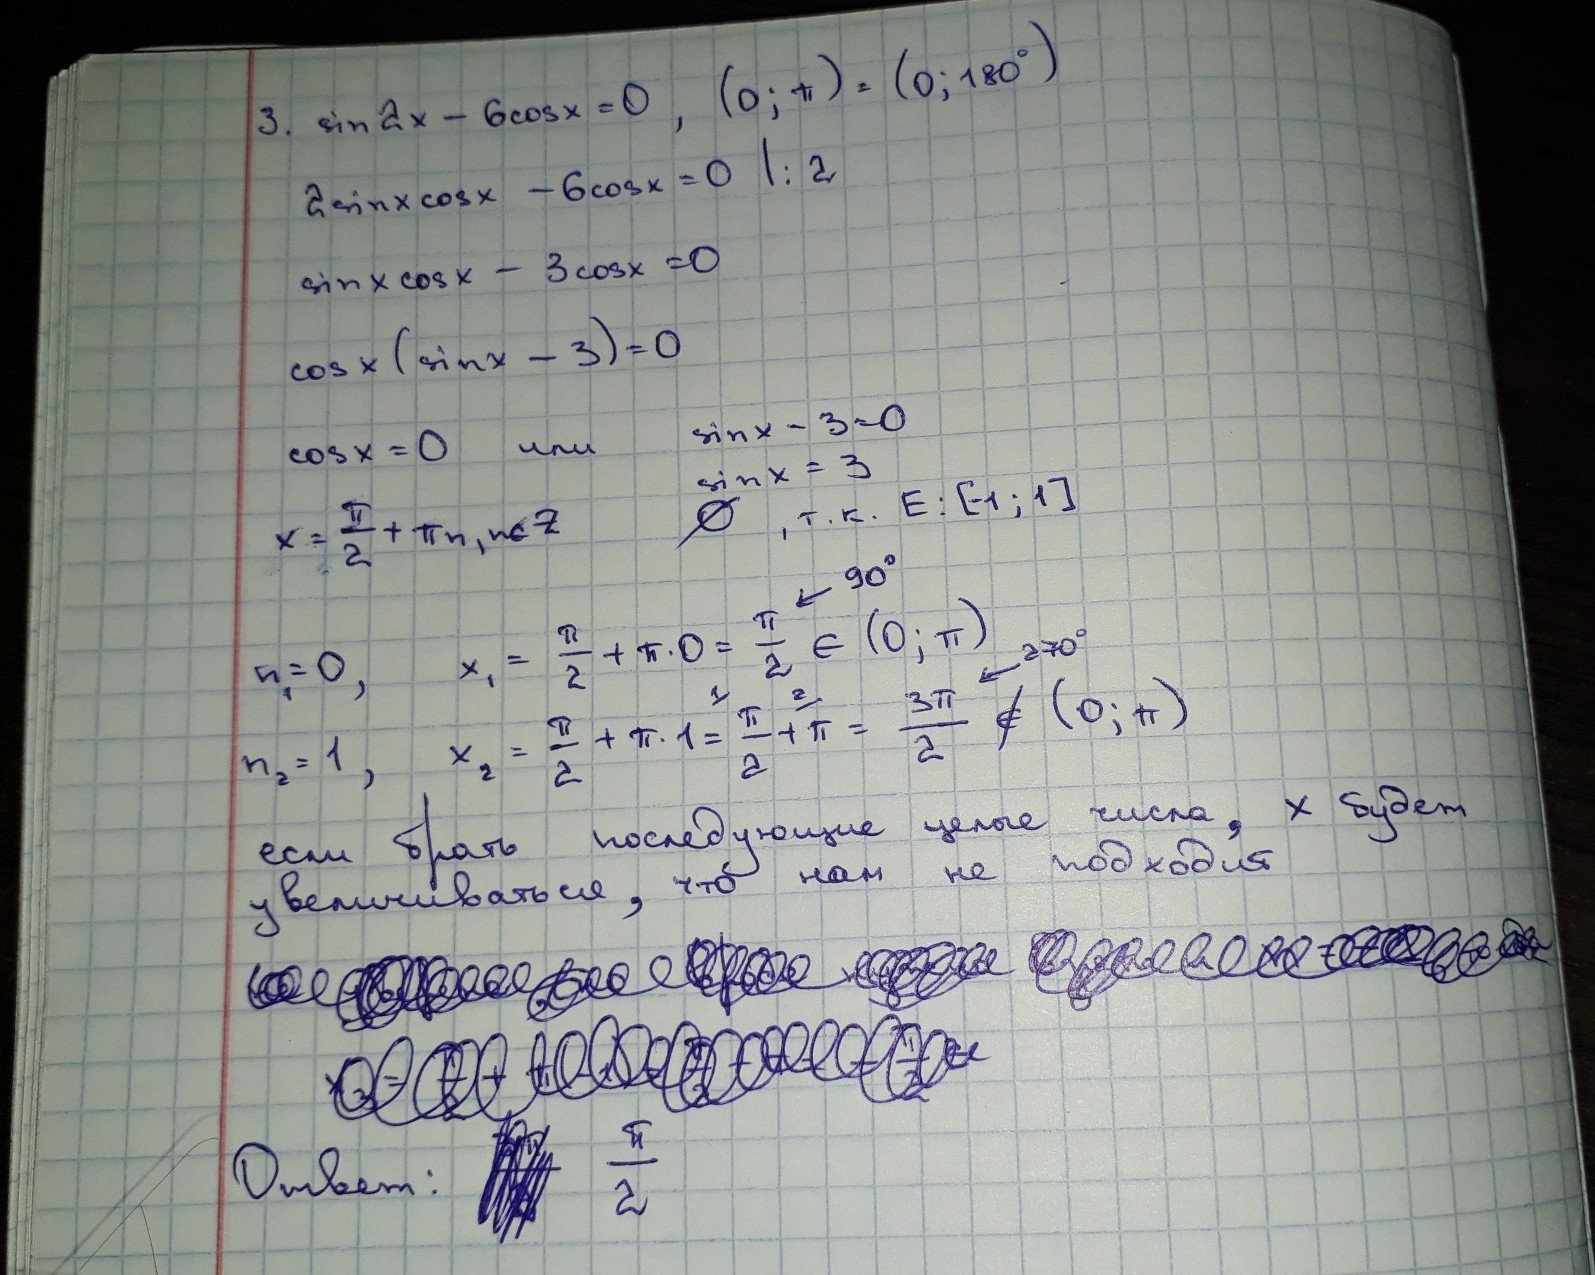 3. sin2x - 6cosx = 0, (0; π) = (0; 180°)
2sinxcosx - 6cosx = 0 |: 2
sinxcosx - 3cosx = 0
cosx(sinx - 3) = 0
cosx = 0 или sinx - 3 = 0
sinx = 3
x = π/2 + πn, n∈Z ∅, т.к. E: [-1; 1]
90°
n₁ = 0, x₁ = π/2 + π·0 = π/2 ∈ (0; π)
270°
n₂ = 1, x₂ = π/2 + π·1 = π/2 + π = 3π/2 ∉ (0; π)
если брать последующие целые числа, x будет
увеличиваться, что нам не подходит
Ответ: π/2